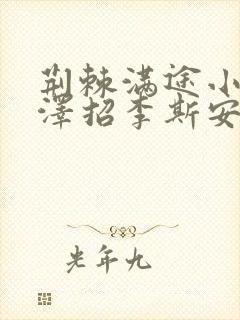 荆棘满途小
泽招李斯安
光年九